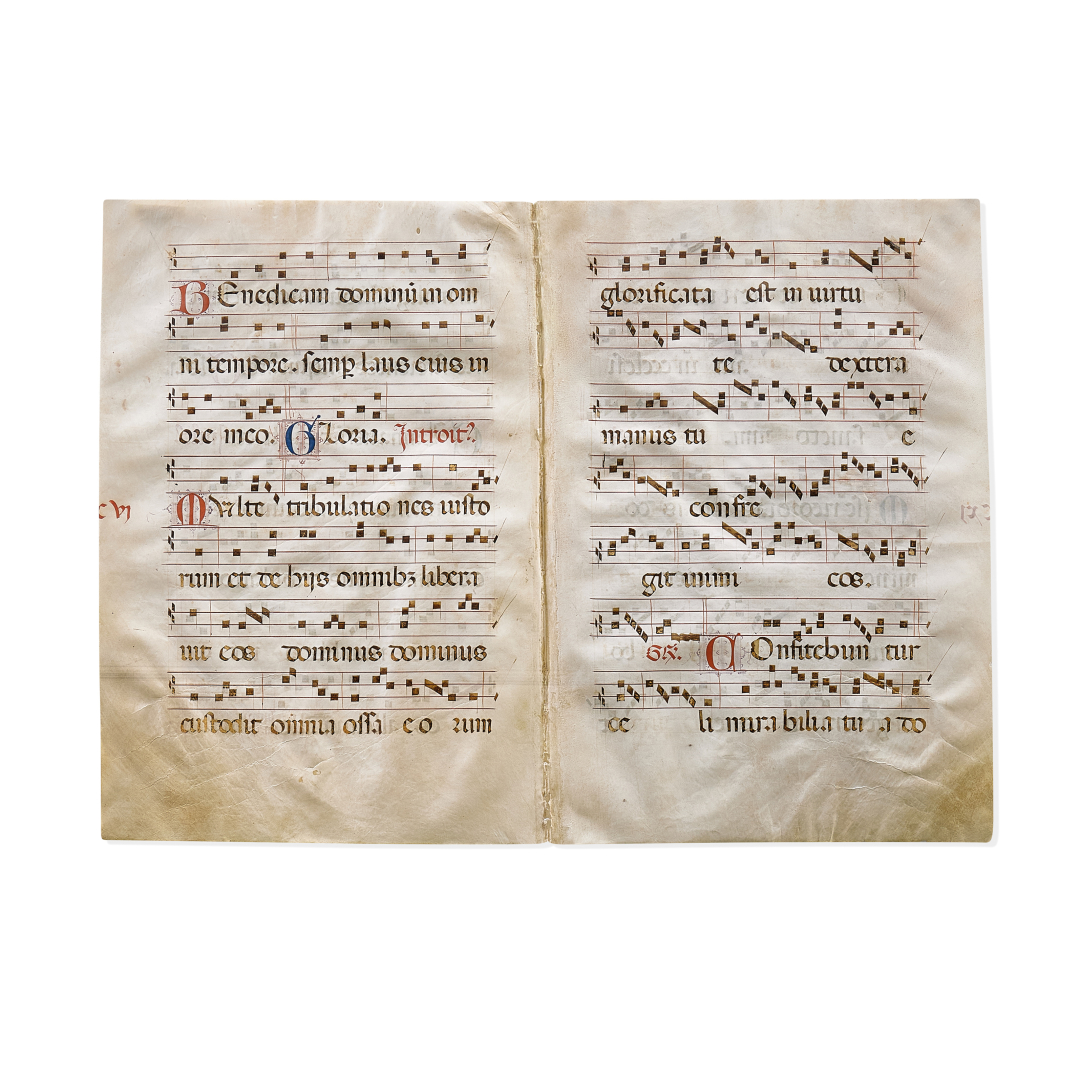 BEnedicam dominū in om
ni tempore. semp̱ laus eius in
ore meo. GLoria. Introit9.
cvi
MUlte tribulatio nes iusto
rum et de hijs omnibꝫ libera
uit eos dominus dominus
custodit omnia ossa e o rum
glorificata est in uirtu
te dextera
manus tu e
confre
git inimi cos.
COnfitebun tur
ce li mirabilia tu a do